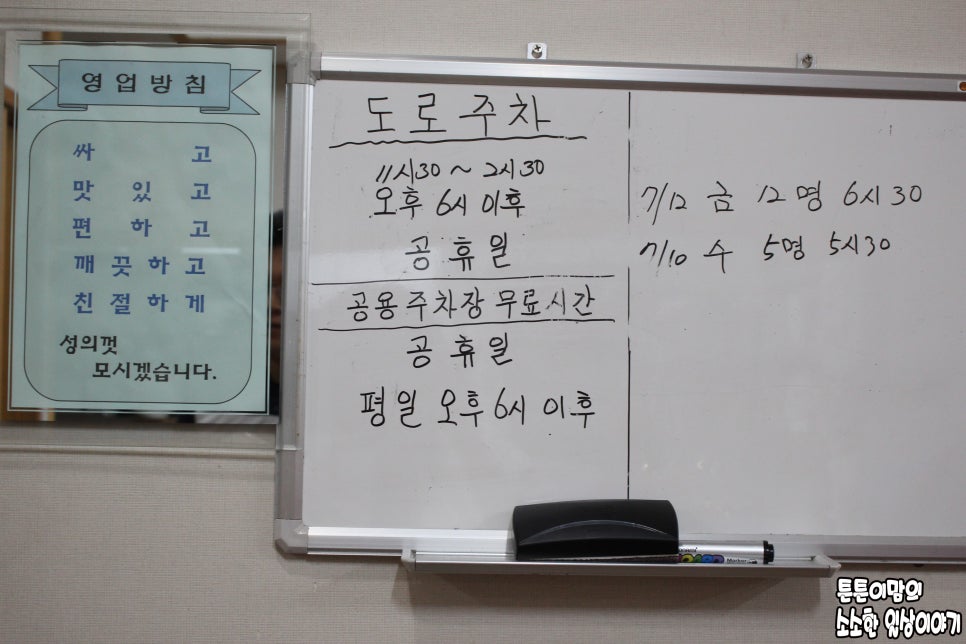 영업방침
싸고
맛있고
편하고
깨끗하고
친절하게
성의껏
모시겠습니다.
도로주차
11시30 ~ 2시30
오후 6시 이후
공휴일
공용주차장 무료시간
공휴일
평일 오후 6시 이후
7/12 금 12명 6시 30
7/10 수 5명 5시30
Marker
튼튼이맘의
소소한 일상이야기